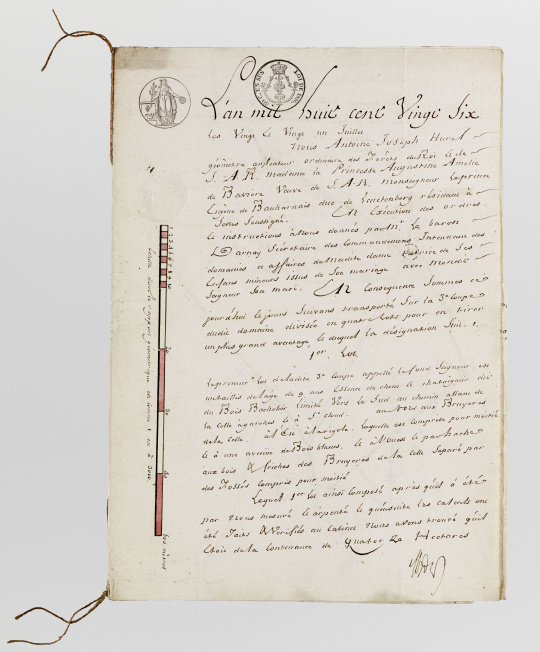 L'an mil huit cent Vingt Six
les Vingt & Vingt un Juillet
Nous Antoine Joseph Hurel
géomètre arpenteur ordinaire des Forêts du Roi & de
S. A. R. madame la Princesse Augustine Amélie
de Bavière Veuve de S. A. R. monseigneur Le prince
Eugène de Bauharnais duc de Leuctenberg résidant à
Soussigné.
En Exécution des ordres
& instructions à Nous donnés par Mr. Le baron
Darnay Sécrétaire des Commandemens Intendant des
domaines & affaires de madite dame de Ses
Enfans mineurs issus de Son mariage avec mondit
Seigneur Son mari. En Conséquence Sommes ce
jourd'hui & jours Suivans transporté Sur la 3e Coupe
dudit domaine divisée en quatre Lots pour en tirer
un plus grand avantage & duquel la désignation Suit.
1er. Lot
Le premier Lot de ladite 3e Coupe appellé le fond Seigneur est
un taillis de l'age de 9 ans Essence de chêne & chataignier dit
du Bois Bachelier limité Vers Le Sud au chemin allant de
la Celle à St Cloud. au Nord aux Bruyères
de la Celle. à L'Est laquelle est comprise pour moitié
& à une avenue de Bois blancs. & à l'Ouest &
aux bois & friches des Bruyeres de la Celle Séparé par
des Fossés Compris pour moitié
Lequel 1er Lot ainsi Composé après qu'il a été
par Nous mesuré & arpenté & qu'ensuite les calculs ont
été Faits & Vérifiés au Cabinet Nous avons trouvé qu'il
Etoit de la Contenance de Quatorze Hectares
1 2 3 4 5 6 7 8 9 10
20
30
40
60 mètres